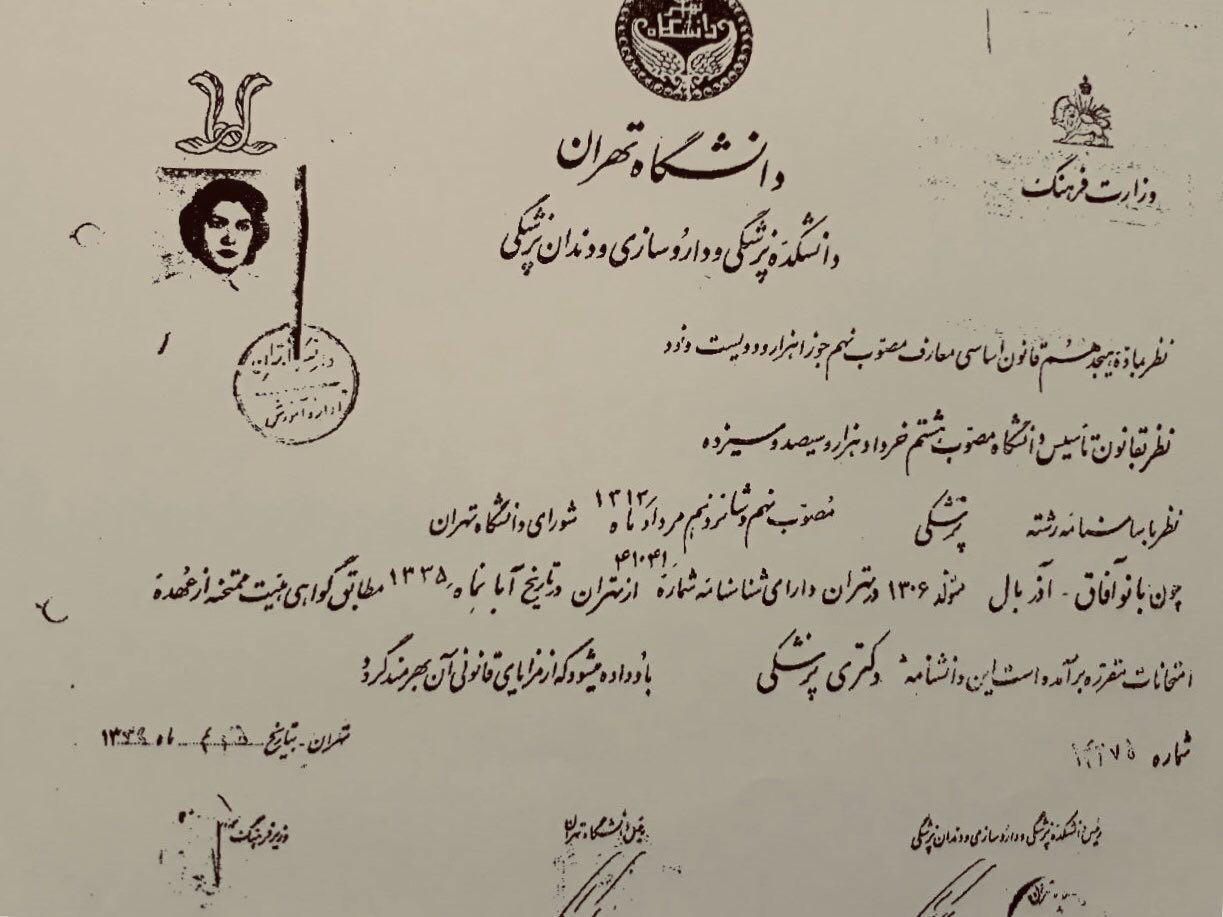 دانشگاه تهران
وزارت فرهنگ
دانشگاه تهران
دانشکدهٔ پزشکی و داروسازی و دندان پزشکی
اداره آموزش
نظر بمادّهٔ هیجدهم قانون اساسی معارف مصوّب نهم جوزا هزار و دویست و نود
نظر بقانون تأسیس دانشگاه مصوّب هشتم خرداد هزار و سیصد و سیزده
نظر باساسنامه رشته پزشکی مصوّب نهم و شانزدهم مرداد ماه ۱۳۱۳ شورای دانشگاه تهران
چون بانو آفاق - آذر بال متولد ۱۳۰۶ در تهران دارای شناسنامه شمارهٔ ۴۱۰۴۱ از تهران در تاریخ آبانماه ۱۳۳۵ مطابق گواهی هیئت ممتحنه از عهدهٔ
امتحانات مقرّره برآمده است این دانشنامهٔ دکتری پزشکی باو داده میشود که از مزایای قانونی آن بهره‌مند گردد
شماره
تهران - بتاریخ ماه
رئیس دانشکدهٔ پزشکی و داروسازی و دندان پزشکی
رئیس دانشگاه تهران
وزیر فرهنگ